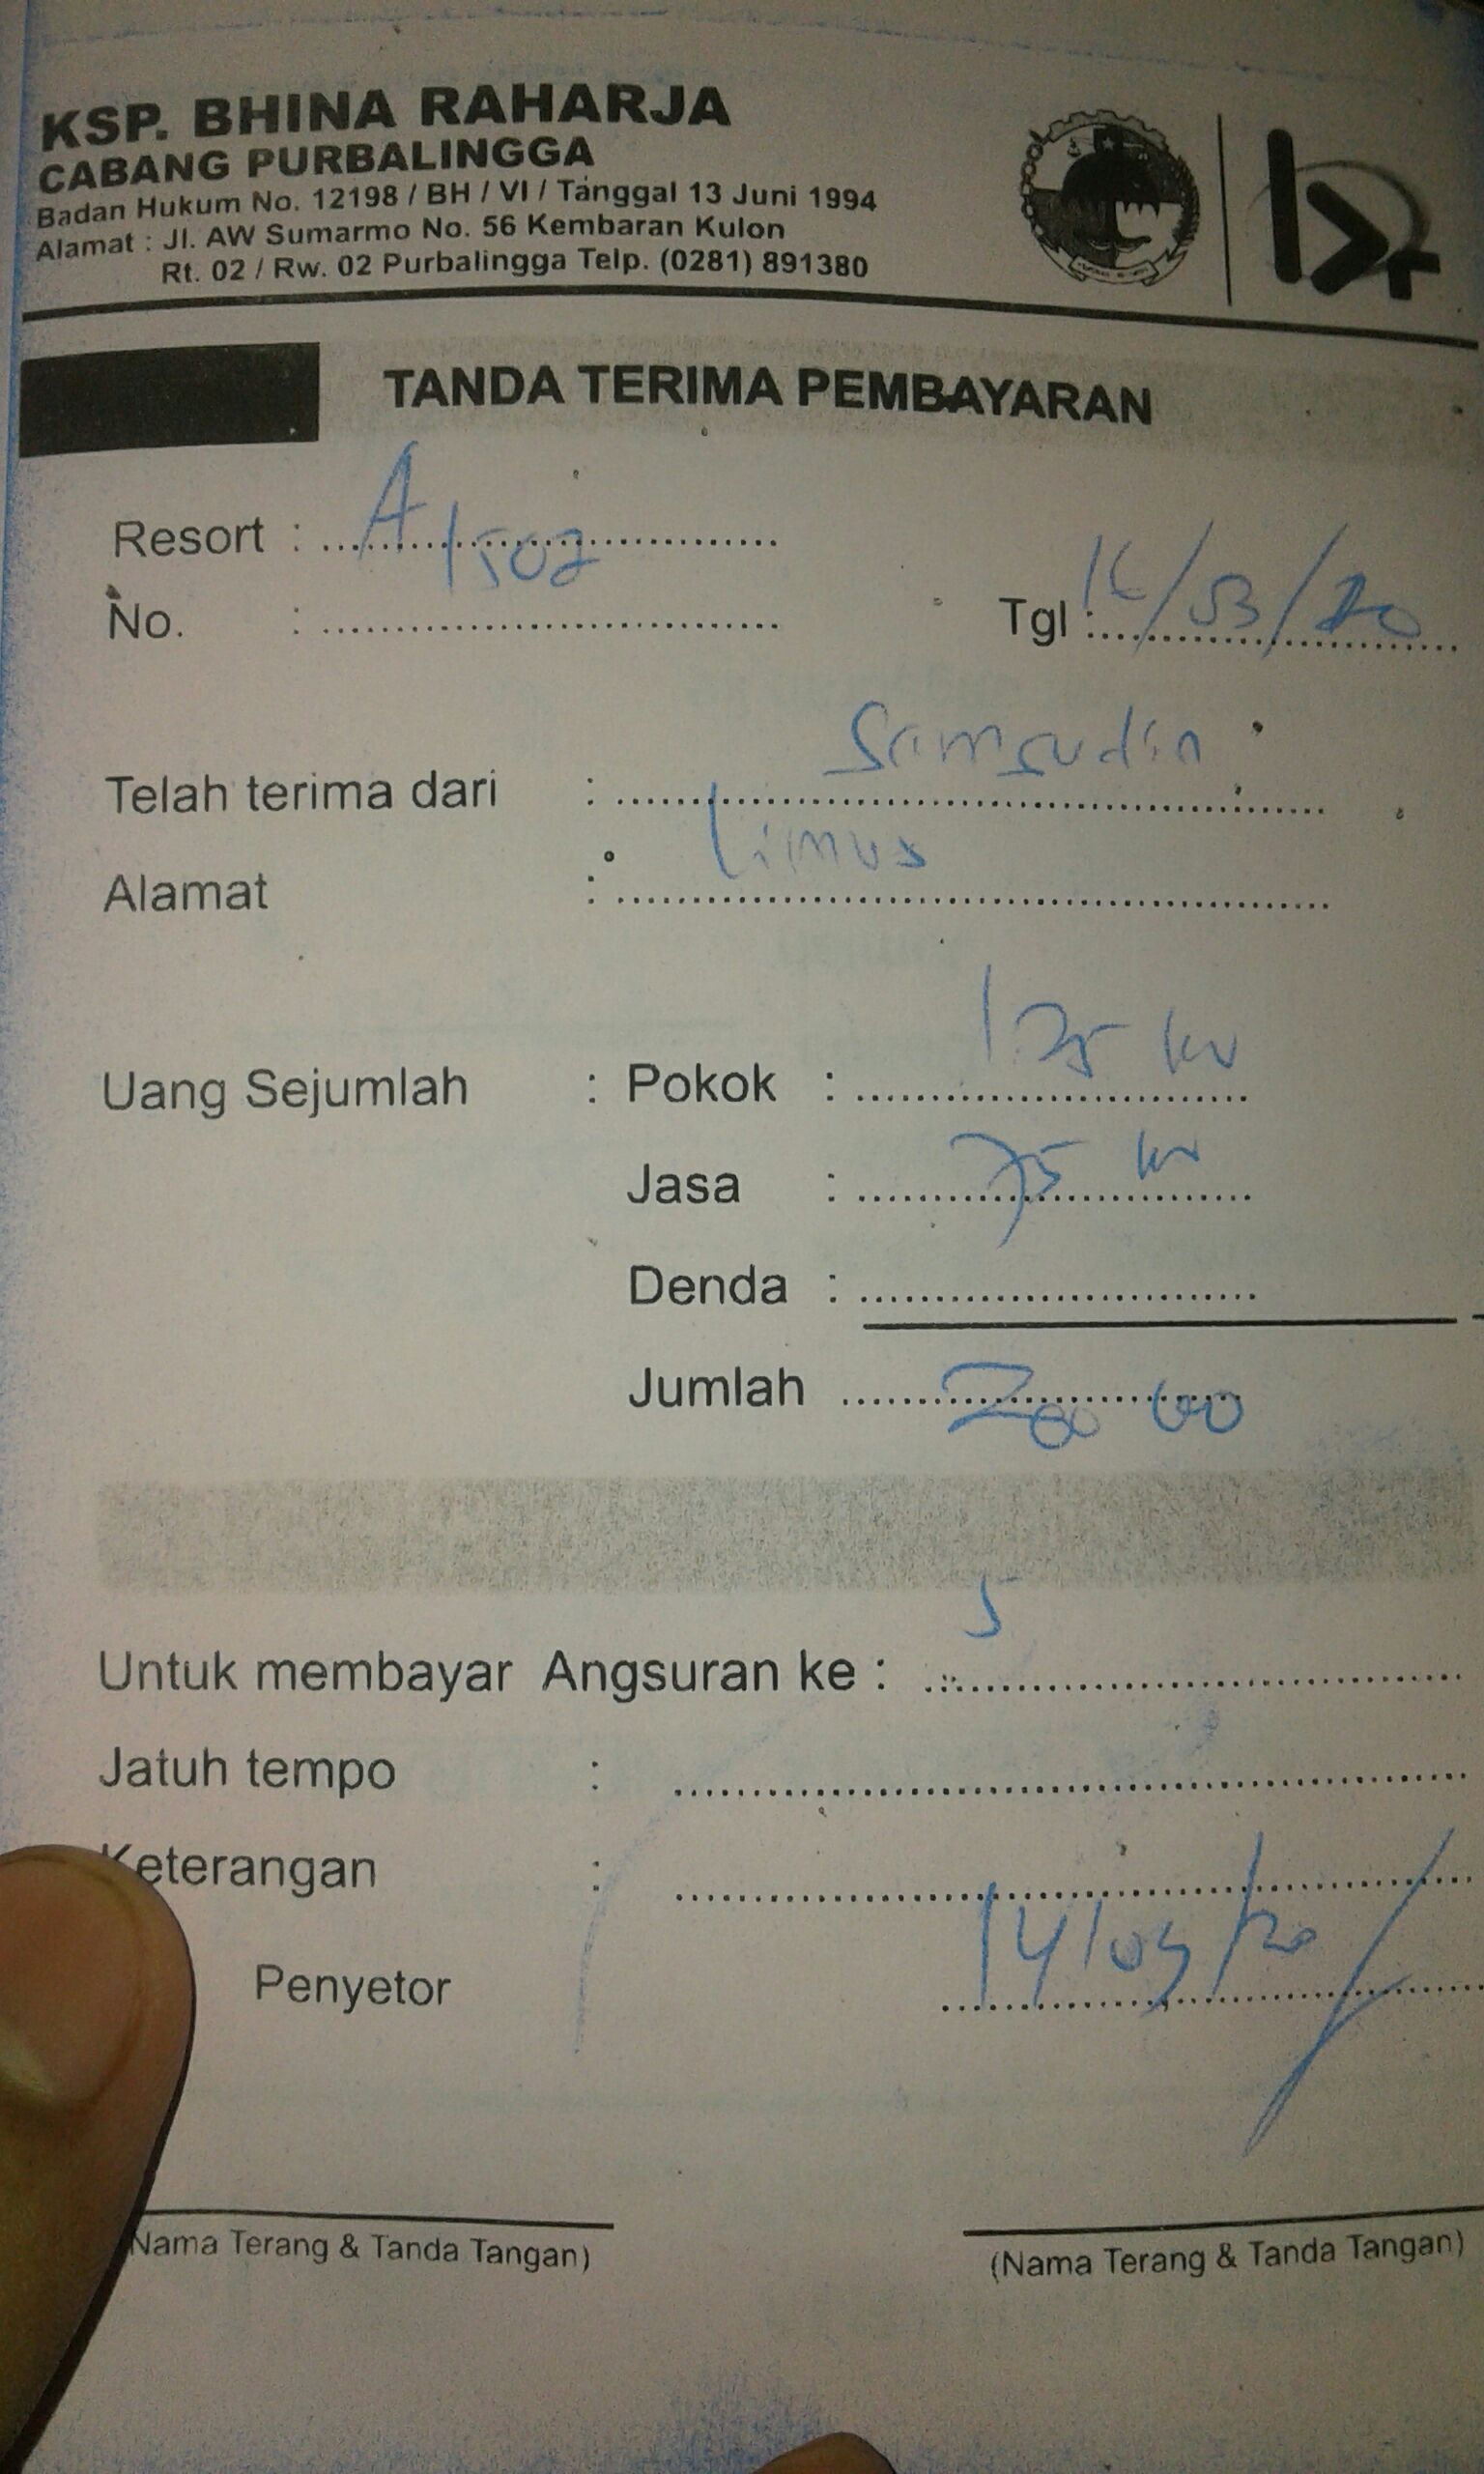 KSP. BHINA RAHARJA
CABANG PURBALINGGA
Badan Hukum No. 12198 / BH / VI / Tanggal 13 Juni 1994
Alamat : Jl. AW Sumarmo No. 56 Kembaran Kulon
Rt. 02 / Rw. 02 Purbalingga Telp. (0281) 891380
TANDA TERIMA PEMBAYARAN
Resort : A/502
No. :
Tgl : /03/20
Telah terima dari : Samsudin
Alamat : Limus
Uang Sejumlah : Pokok : 125
Jasa : 75
Denda :
Jumlah 200 00
Untuk membayar Angsuran ke : 5
Jatuh tempo :
Keterangan :
Penyetor 14/03/20
Nama Terang & Tanda Tangan)
(Nama Terang & Tanda Tangan)